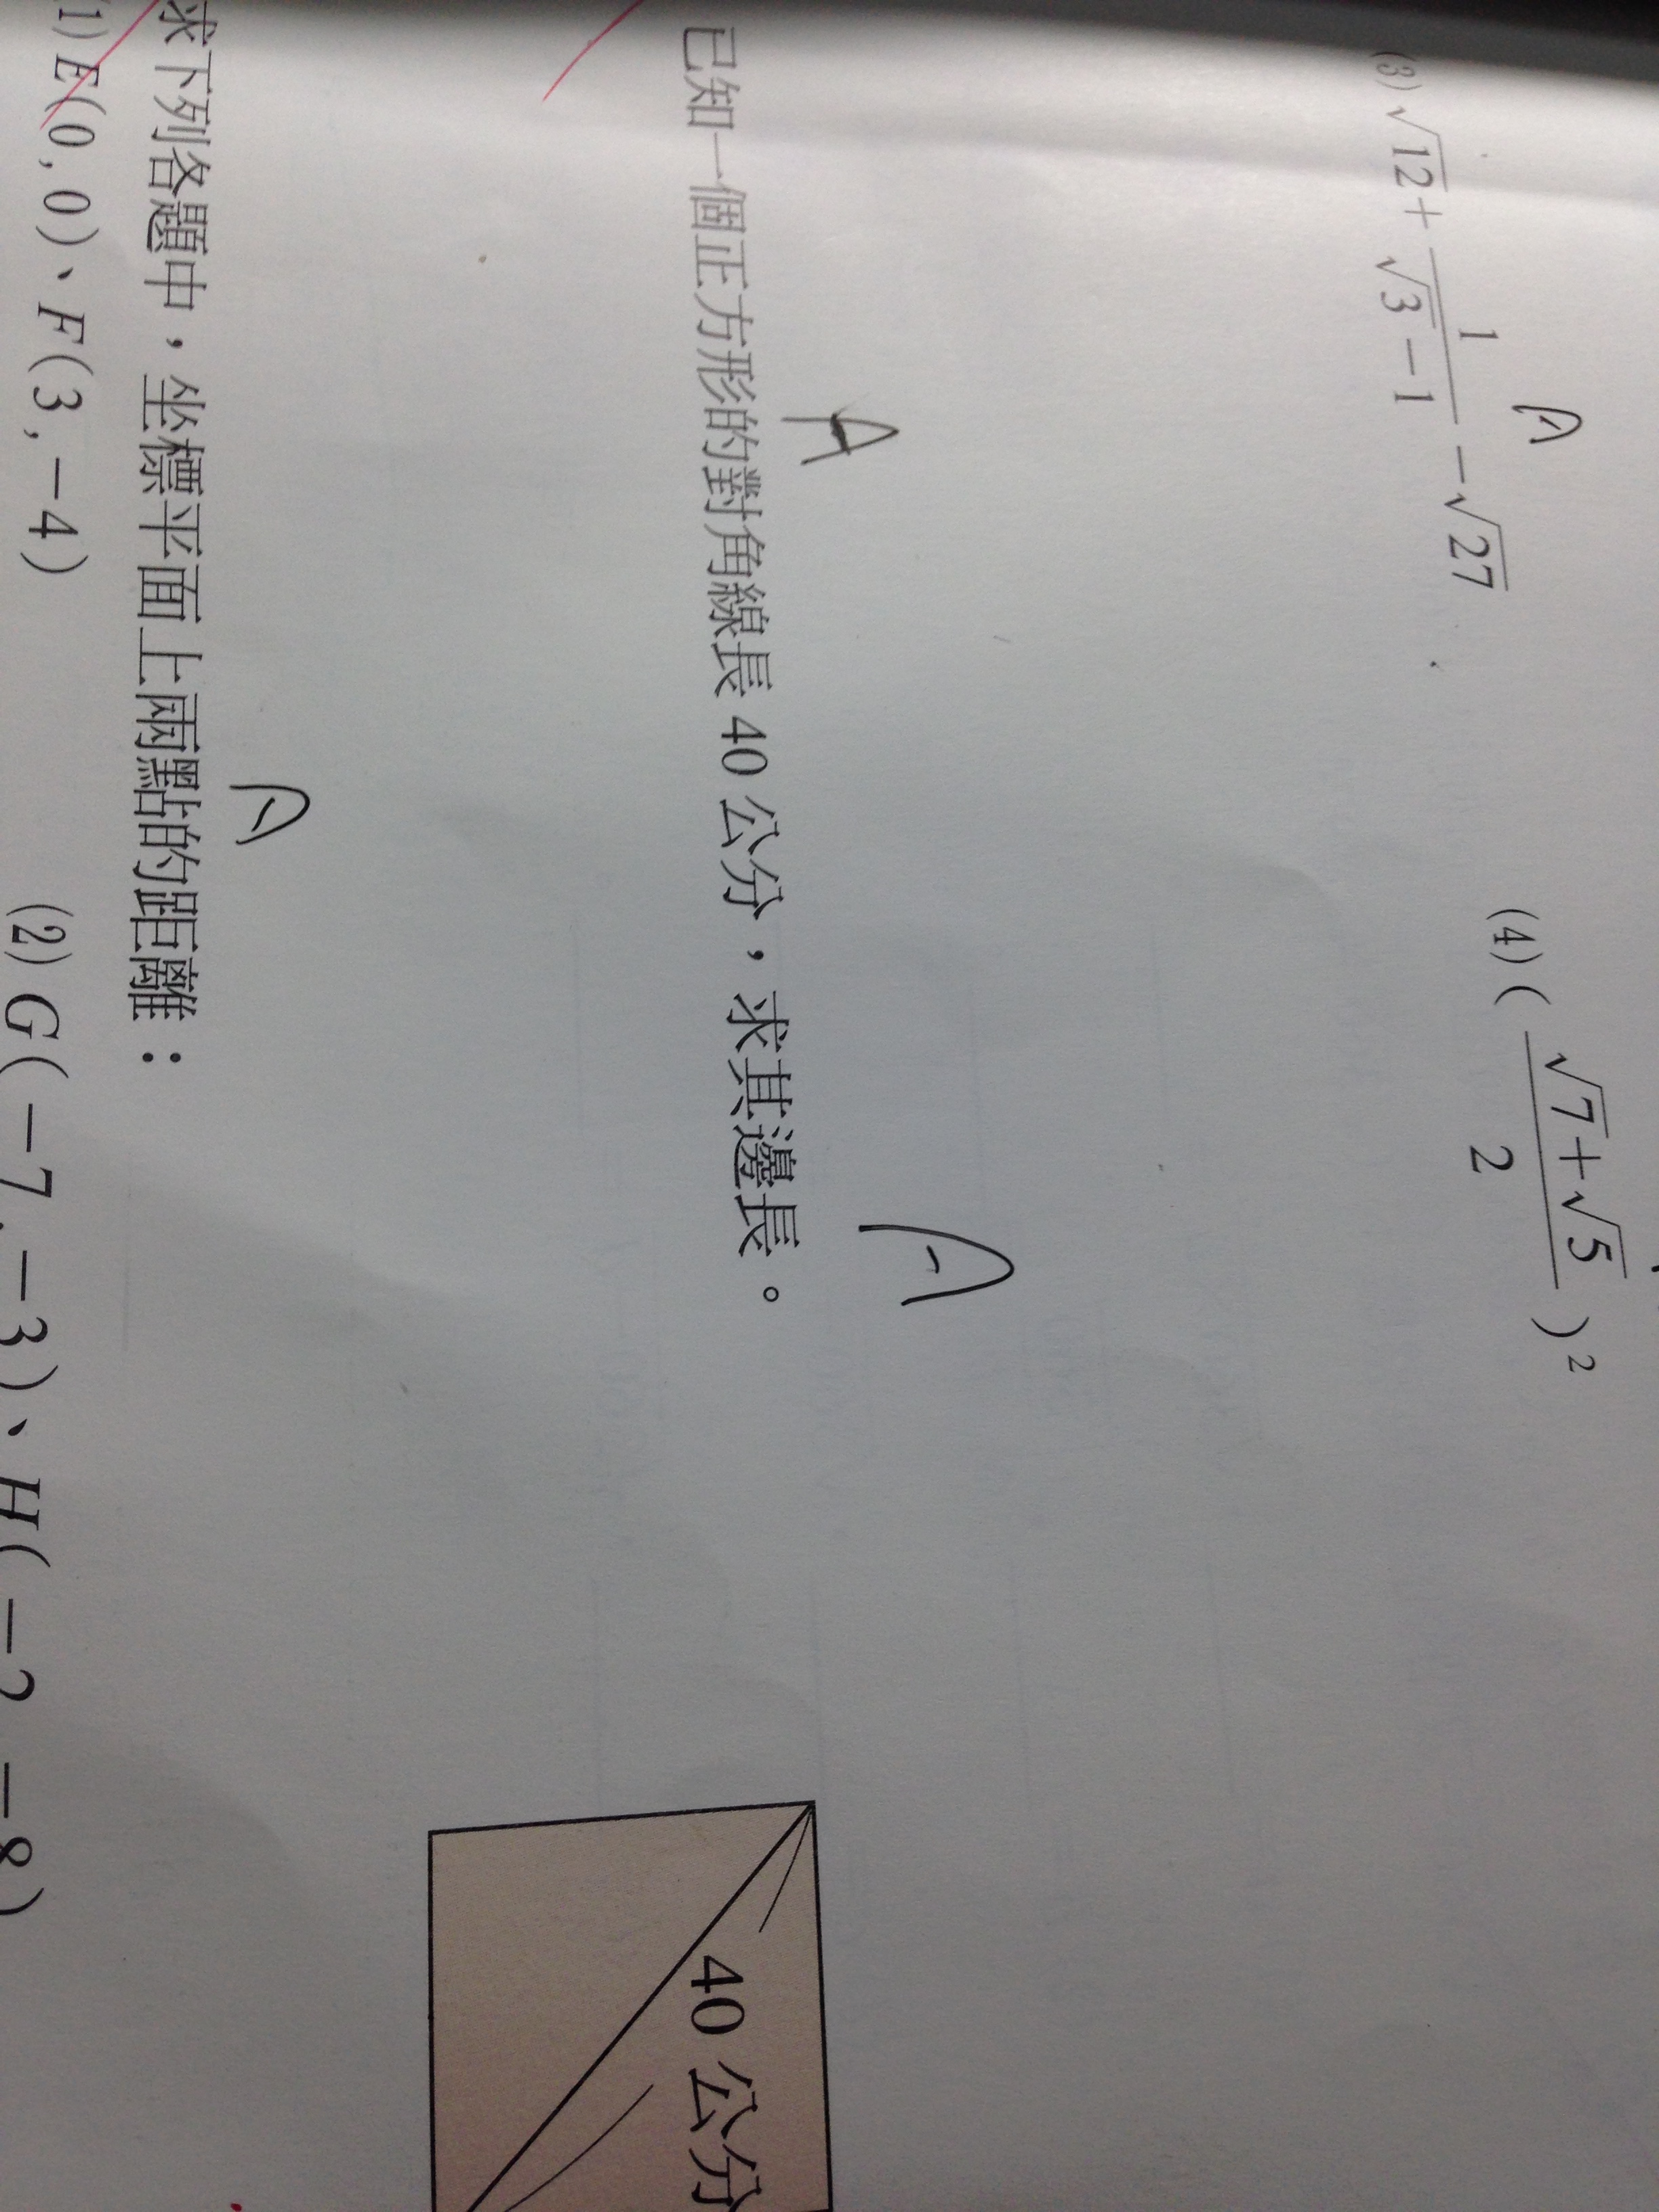 (3) √12 + 1/(√3 − 1) − √27
(4) ( (√7 + √5)/2 )²
A
A
已知一個正方形的對角線長 40 公分，求其邊長。
A
A
40 公分
求下列各題中，坐標平面上兩點的距離：
(1) E(0, 0)、F(3, −4)
(2) G(−7, −3)、H(−2, −8)